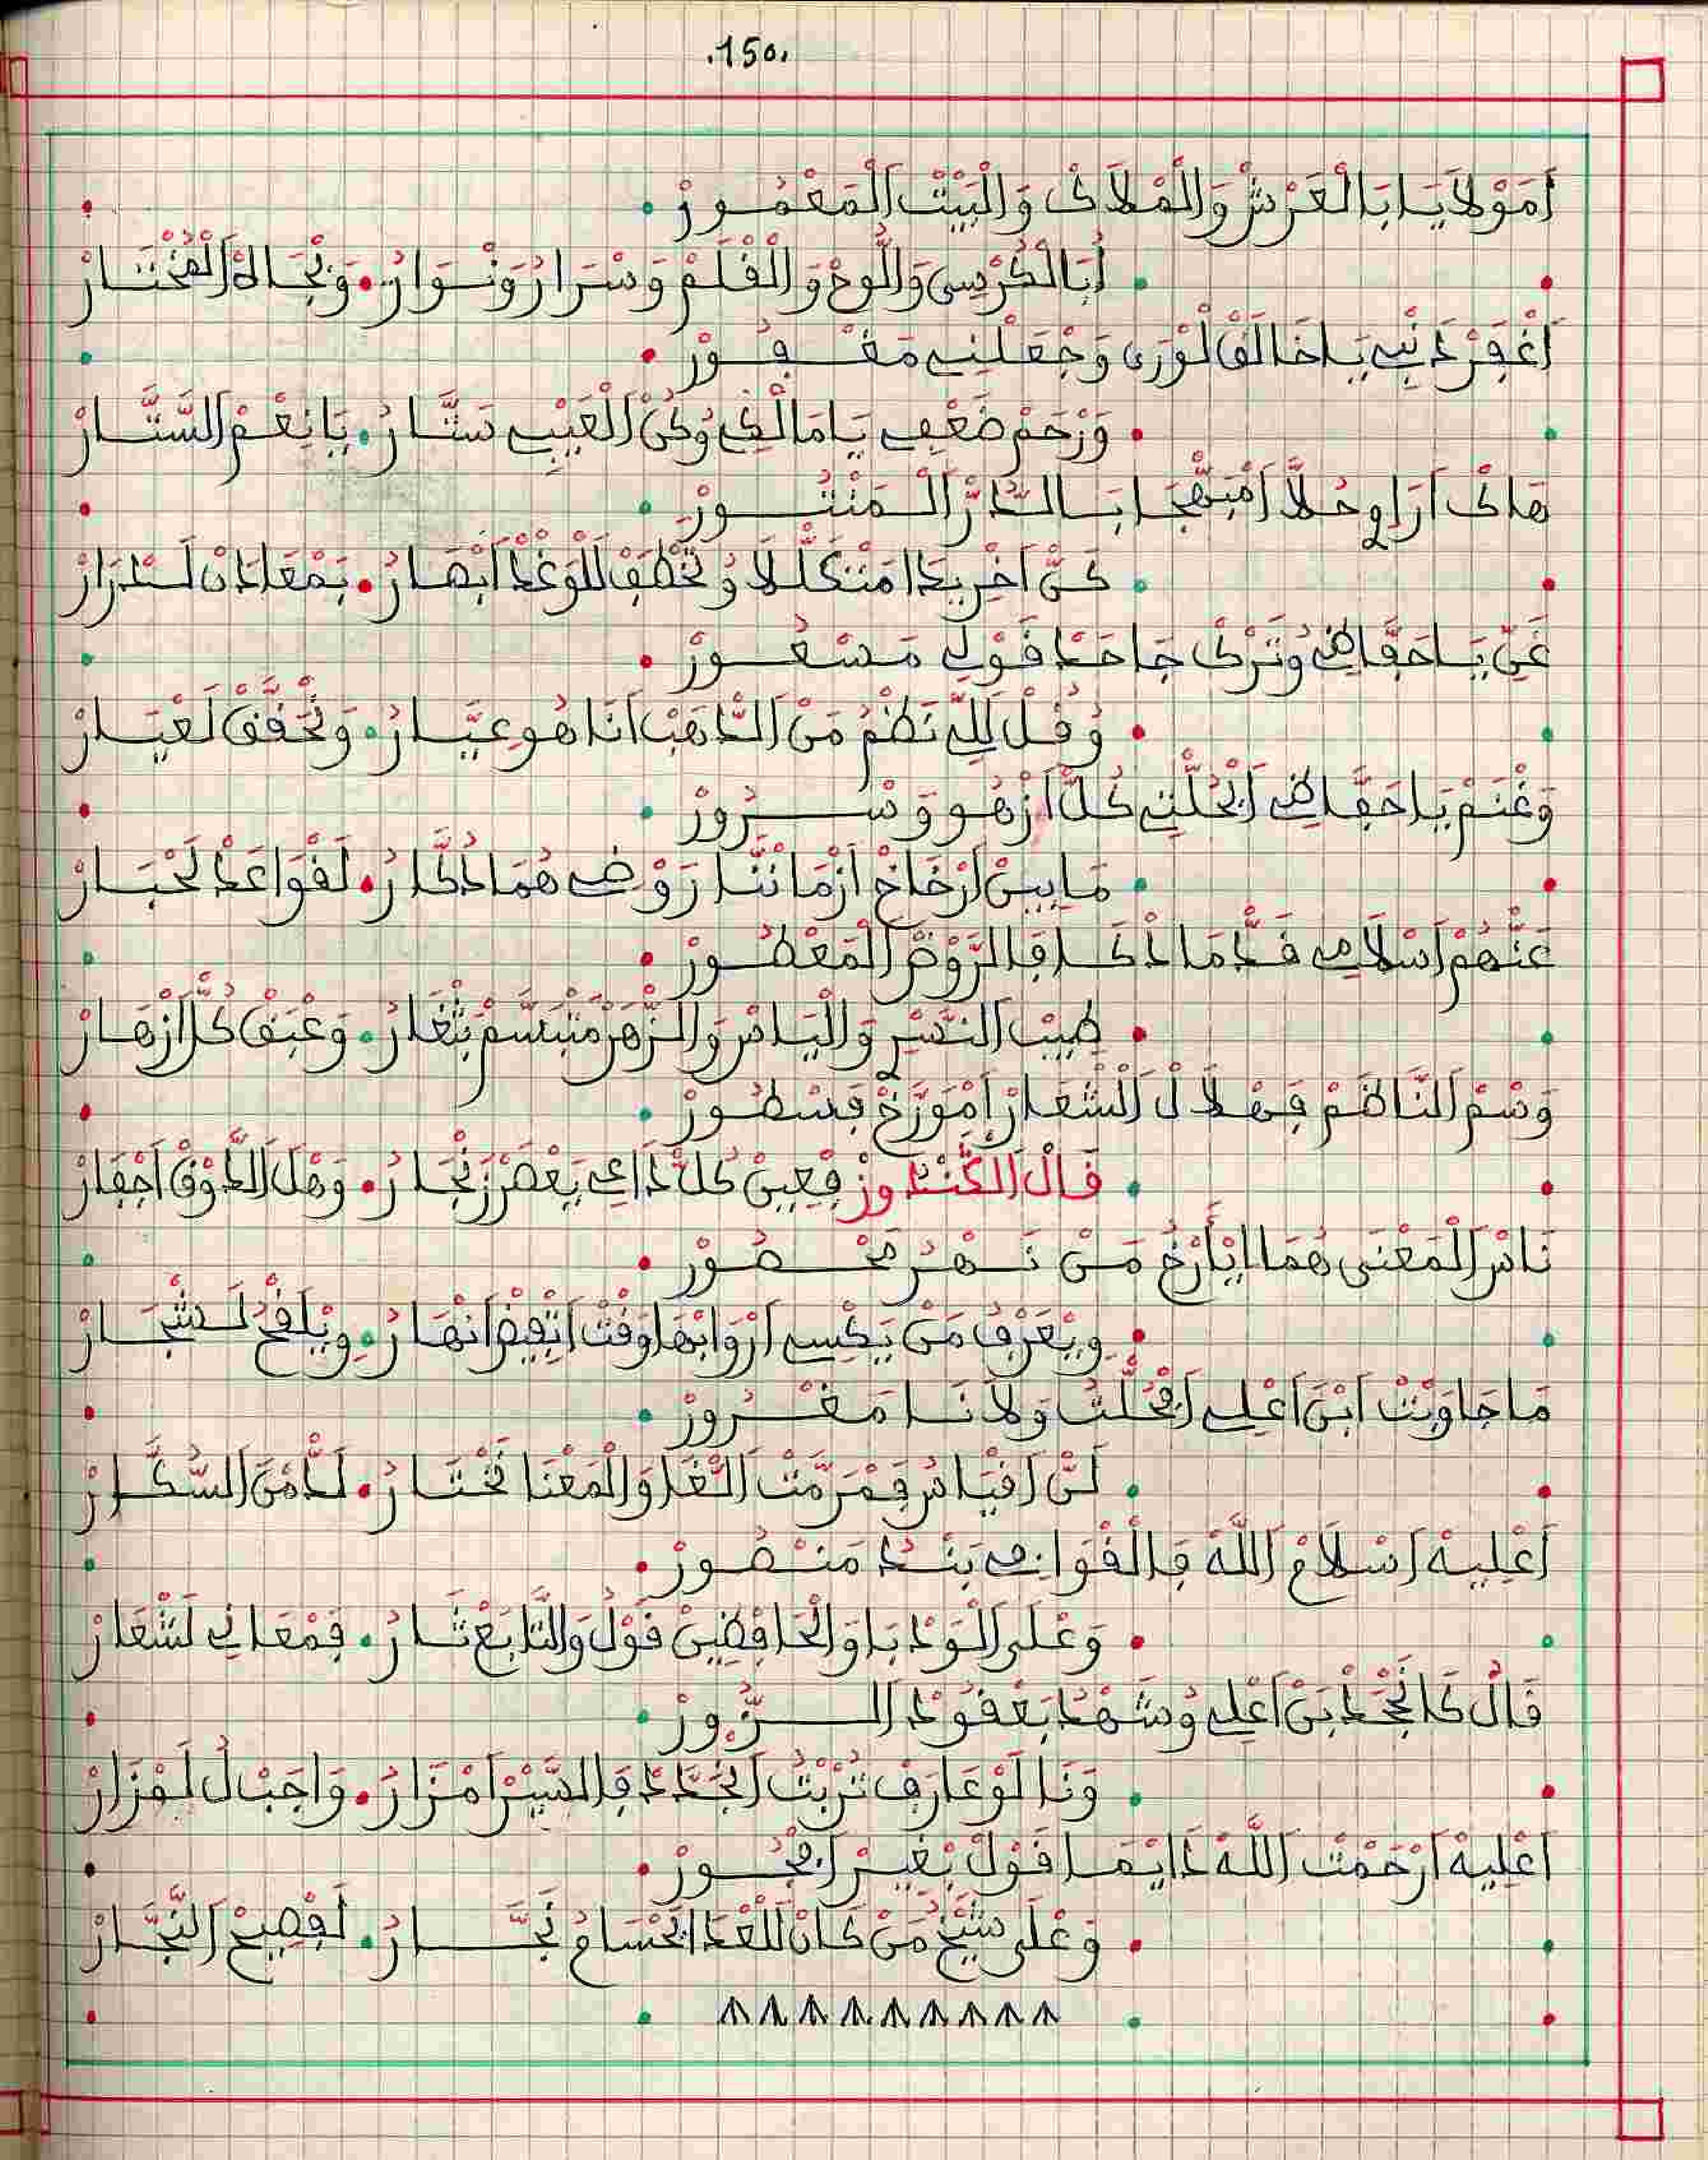 .150.
اَمَوْلَايَا بَالْعَرْشْ وَالْمْلَاكْ وَالْبَيْتْ اَلْمَعْمُورْ
اُبَالْكُرْسِي وَاللُّوحْ وَالْقْلَمْ وَسْرَارُ وَنْوَارُ . وَبْجَاهْ اَلْمُخْتَارْ
اَغْفِرْ دَنْبِي يَاخَالَقْ لَوْرَى وَجْعَلْنِي مَغْفُورْ
وَرْحَمْ ضَعْفِي يَا مَالْكِي وُكُنْ الْعَيْبِي سَتَّارُ . يَا نِعْمَ السَّتَّارْ
هَاكْ اَرَاوِ حُلَّا اَمْبَهْجَا بَالدُّرّْ اَلْمَنْثُورْ
كَنّْ اَخْرِيدَا مَتْكَلْلَا وُتَخْطَفْ لَلْوَغْدْ اَبْصَارُ . بَمْعَادَنْ لَسْرَارْ
غَنِّي يَاحَفَّاضِي وُتَرْكْ جَاحَدْ قَوْلِي مَسْعُورْ
وُقُلْ لَلِّي نَظْمُ مَنْ الدَّاهَبْ اَنَا هُوعِيَّارُ . وَنْحَقَّقْ لَعْيَارْ
وَغْنَمْ يَاحَفَّاضِي اَبْحُلّْتِي كُلّْ اَزْهُو وَسْرُورْ
مَابِينْ اَرْخَاخْ اَزْمَانْنَا رَوْضِي هُمَا دُكَّارُ . لَقْوَاعَدْ لَحْبَارْ
عَنْهُمْ اَسْلَامِي قَدّْ مَادْكَا فَالرَّوْضْ اَلْمَعْطُورْ
طِيبْ النَّسْرِي وَالْيَاسْ وَالزّْهَرْ مَتْبَسَّمْ بَثْغَارُ . وَعْبَقْ كُلّْ اَزْهَارْ
وَسْمْ النَّاظَمْ فَهْلَالْ الشْعَارْ اَمْوَرَّخْ فَسْطُورْ
قَالْ اَلْكَنْدُوزْ فِعِينْ كُلّْ دَاعِي يَعْصَرْ زَنْجَارُ . وَهْلَ الدَّوْقْ اَجْفَارْ
نَاسْ اَلْمَعْنَى هُمَا اِيْأَرْخُ مَنْ نَهْرُ مَحْصُورْ
وِيعَرْفُ مَنْ يَكْسِي اَرْوَابْهَا وَقْتْ اَتْفِيضْ اَنْهَارُ . وِيْلَقَّحْ لَشْجَارْ
مَاجَاوَبْتْ اَبْنْ اَعْلِي اَبْحُلّْتُ وَلَانَا مَغْرُورْ
لَنّْ اَقْيَاسُ فَمْرَمَّتْ اَللّْغَا وَالْمَعْنَا تَخْتَارُ . لَدّْ مْنَ السُّكَّارْ
اَعْلِيهْ اَسْلَامْ اَللَّهْ فَالْقْوَافِي بَنْدُ مَنْصُورْ
وَعْلَى الْوَدْبَا وَالْحَافْضِينْ قَوْلُ وَالتَّابَعْ ثَارُ . فَمْعَانِي لَشْعَارْ
قَالْ كَانْجْحَدْ بَنْ اَعْلِي وُشَهْدُ بَعْقُودْ اَلزُّورْ
وَنَا لَوْعَارَفْ تُرْبْتُ اَنْجَدَّدْ فَالسَّيْرْ اَمْزَارُ . وَاجَبْ لُ لَمْزَارْ
اَعْلِيهْ اَرْحَمْتْ اَللَّهْ دَايْمَا قَوْلْ بْغِيرْ اَفْجُورْ
وَعْلَى شَيْخُ مَنْ كَانْ لَلْعْدَا بَحْسَامُ نَجَّارُ . لَفْصِيحْ اَلنَّجَّارْ